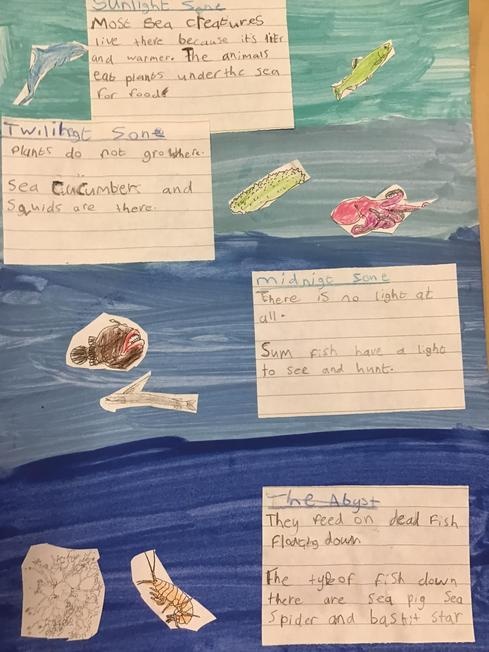 Sunlight Sone
Most Sea creatures
live there because its liter
and warmer. The animals
eat plants under the sea
for food.
Twilihgt Sone
Plants do not gro where.
Sea Cucumbers and
Squids are there.
midnigt Sone
There is no light at
all.
Sum fish have a light
to see and hunt.
The Abyst
They feed on dead fish
down
The type of fish down
there are sea pig Sea
Spider and bastit star